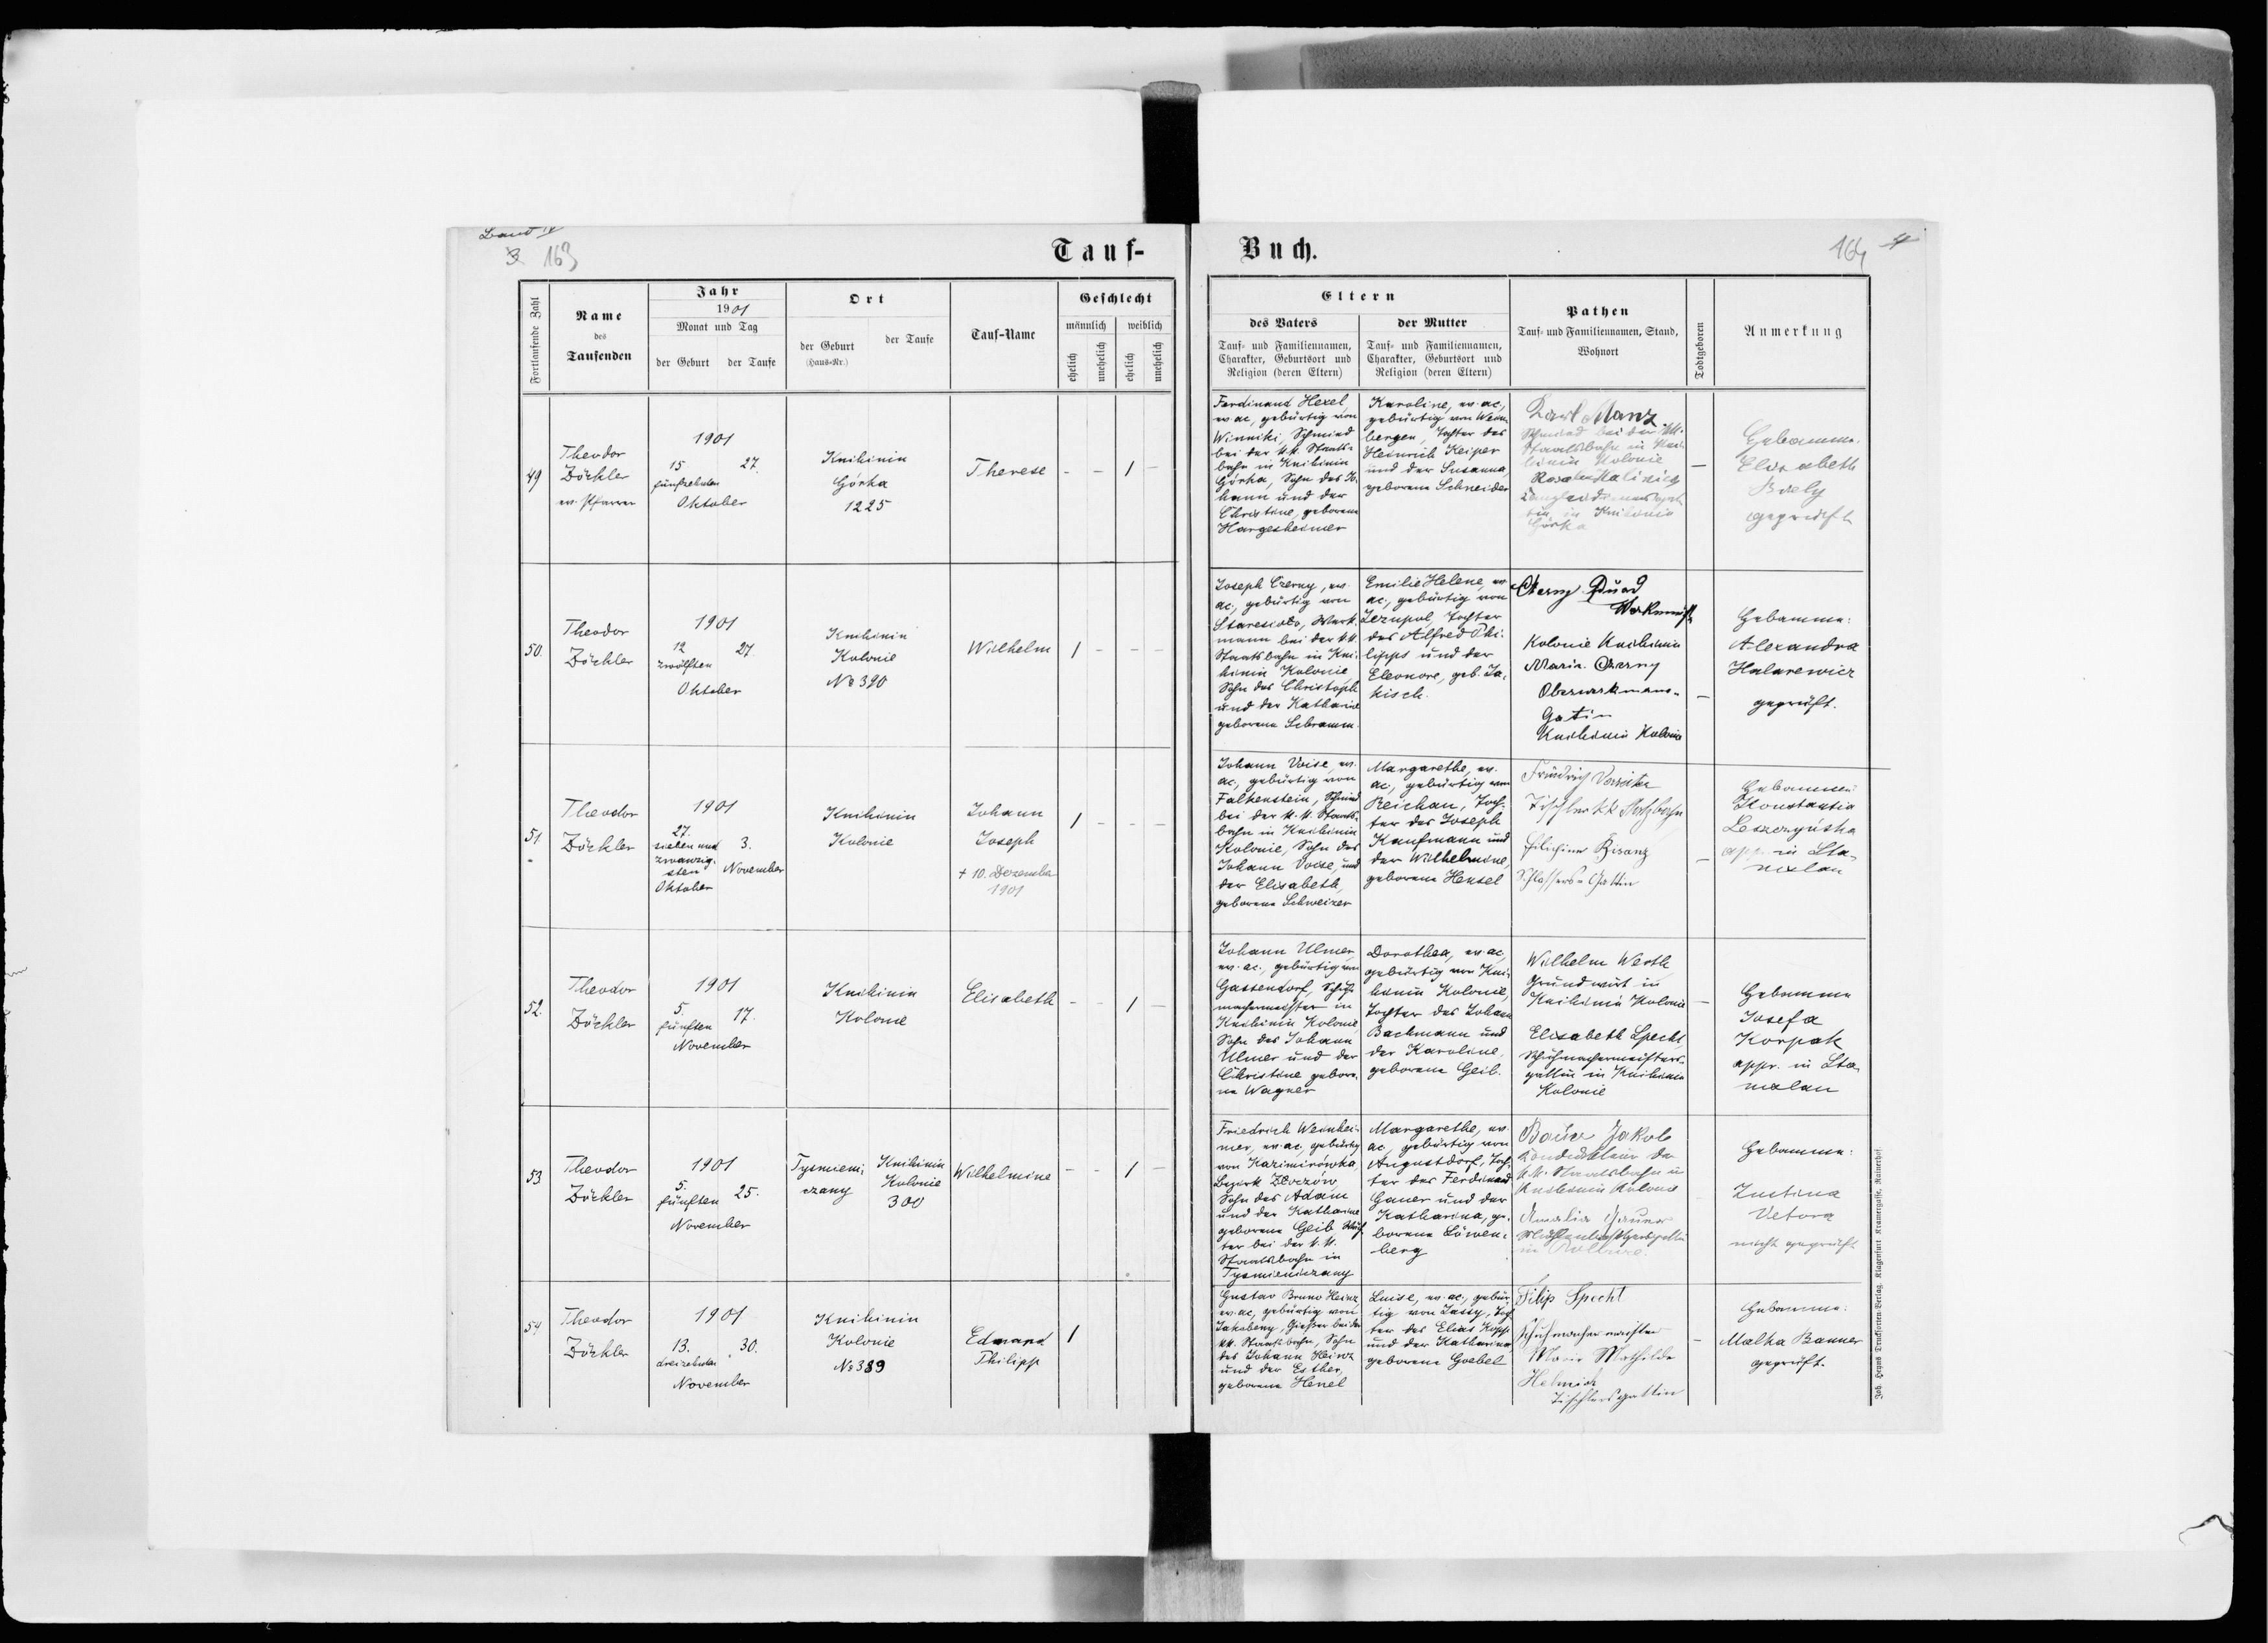 Band IV
163
Tauf-
Buch.
164
Fortlaufende Zahl
Name
des
Taufenden
Jahr
1901
Monat und Tag
der Geburt
der Taufe
Ort
der Geburt
(Haus-Nr.)
der Taufe
Tauf-Name
Geschlecht
männlich
weiblich
ehelich
unehelich
ehelich
unehelich
Eltern
des Vaters
Tauf- und Familiennamen,
Charakter, Geburtsort und
Religion (deren Eltern)
der Mutter
Tauf- und Familiennamen,
Charakter, Geburtsort und
Religion (deren Eltern)
Pathen
Tauf- und Familiennamen, Stand,
Wohnort
Todtgeboren
Anmerkung
49
Theodor
Zöckler
ev. Pfarrer
1901
15.
fünfzehnten
Oktober
27.
Knihinin
Górka
1225
Therese
- - 1 -
Ferdinand Hexel,
ev. ac., gebürtig von
Winniki, Schmied
bei der k.k. Staats-
bahn in Knihinin
Górka, Sohn des Jo-
hann und der
Christine, geborene
Hargesheimer
Karoline, ev. ac.,
gebürtig von Wein-
bergen, Tochter des
Heinrich Keiper
und der Susanna,
geborene Schneider
Karl Manz
Schmied bei der k.k.
Staatsbahn in Kni-
hinin Kolonie
in Knihinin
Górka
-
Hebamme:
Elisabeth
geprüft
50.
Theodor
Zöckler
1901
12
zwölften
Oktober
27.
Knihinin
Kolonie
No 390
Wilhelm
1 - - -
Joseph Czerny, ev.
ac., gebürtig von
Staresioło, Werk-
mann bei der k.k.
Staatsbahn in Kni-
hinin Kolonie,
Sohn des Christoph
und der Katharine
geborene Schramm
Emilie Helene, ev.
ac., gebürtig von
Jezupol, Tochter
des Alfred Phi-
lipps und der
Eleonore, geb. Ja-
kisch.
Kolonie Knihinin
Maria Czerny
Oberwerkmans-
Gatin
Knihinin Kolonie
-
Hebamme:
Alexandra
Halarewicz
geprüft.
51.
Theodor
Zöckler
1901
27.
sieben und
zwanzig-
sten
Oktober
3.
November
Knihinin
Kolonie
Johann
Joseph
† 10. Dezember
1901
1 - - -
Johann Voise, ev.
ac., gebürtig von
Falkenstein, Schmied
bei der k.k. Staats-
bahn in Knihinin
Kolonie, Sohn des
Johann Voise, und
der Elisabeth,
geborene Schweizer
Margarethe, ev.
ac., gebürtig von
Reichau, Toch-
ter des Joseph
Kaufmann und
der Wilhelmine,
geborene Hensel
Friedrich
Tischler k.k. Staatsbahn
Bisanz
Schlossers-Gattin
-
Hebamme:
Konstantia
Leszczyńska
app. in Sta-
nislau
52.
Theodor
Zöckler
1901
5.
fünften
November
17.
Knihinin
Kolonie
Elisabeth
- - 1 -
Johann Ulmer,
ev. ac., gebürtig von
Gassendorf, Schuh-
machermeister in
Knihinin Kolonie,
Sohn des Johann
Ulmer und der
Christine gebore-
ne Wagner
Dorothea, ev. ac,
gebürtig von Kni-
hinin Kolonie,
Tochter des Johann
Bachmann und
der Karoline,
geborene Geib.
Wilhelm Werth
Grundwirt in
Knihinin Kolonie
Elisabeth Specht
Schuhmachermeisters-
gattin in Knihinin
Kolonie
-
Hebamme
Josefa
Korpak
appr. in Sta-
nislau
53
Theodor
Zöckler
1901
5.
fünften
November
25.
Tysmieni-
czany
Knihinin
Kolonie
300
Wilhelmine
- - 1 -
Friedrich Weinhei-
mer, ev. ac., gebürtig
von Kazimirówka,
Bezirk Złoczów,
Sohn des Adam
und der Katharine
geborene Geib, Wäch-
ter bei der k.k.
Staatsbahn in
Tysmieniczany
Margarethe, ev.
ac., gebürtig von
Augustdorf, Toch-
ter des Ferdinand
Gauer und der
Katharina, ge-
borene Löwen-
berg
Bauer Jakob
Kondukteur der
k.k. Staatsbahn in
Knihinin Kolonie
Amalia Gauer
Hebamme:
Justina
Vetora
nicht geprüft
54
Theodor
Zöckler
1901
13.
dreizehnten
November
30.
Knihinin
Kolonie
No 389
Edmand
Philipp
1
Gustav Bruno Heinz
ev. ac., gebürtig von
Jakobeny, Gießer bei der
k.k. Staatsbahn, Sohn
des Johann Heinz
und der Esther,
geborene Henel
Luise, ev. ac., gebür-
tig von Jassy, Toch-
ter des Elias Kopp
und der Katharina
geborene Goebel
Filip Specht
Schuhmachermeister
Marie Mathilde
Helmich
Tischlersgattin
-
Hebamme:
Malka Banner
geprüft.
Joh. Heyns Drucksorten-Verlag, Klagenfurt Kramergasse, Rainerhof.